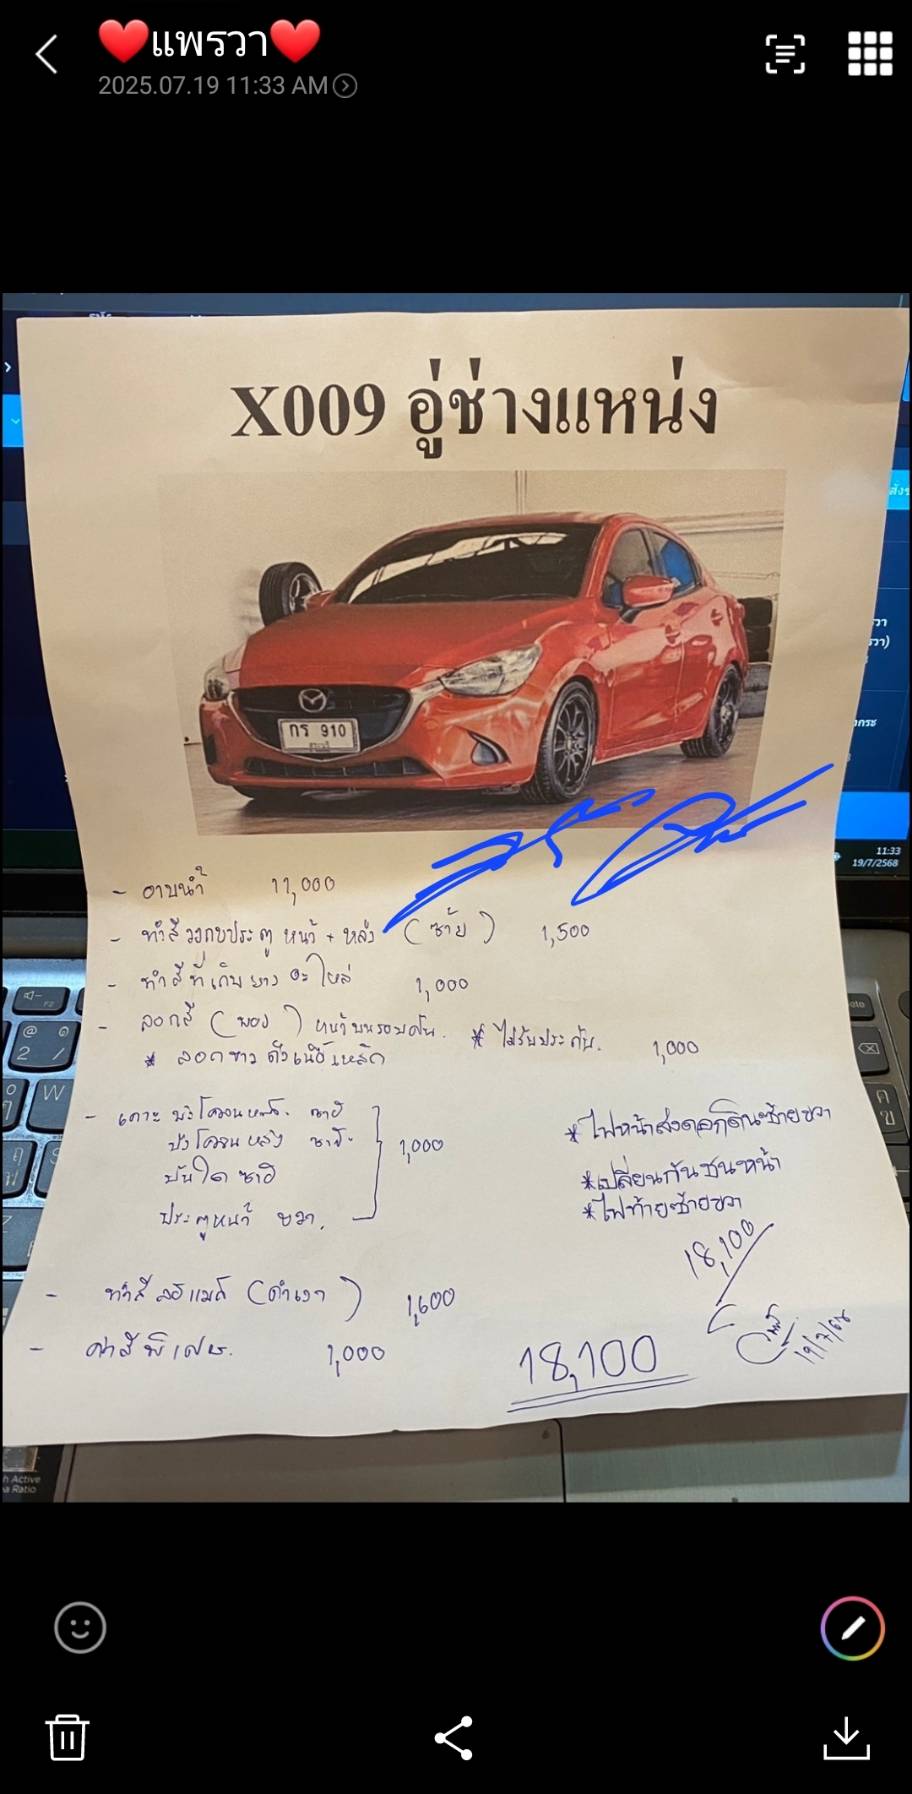 ❤️แพรวา❤️
2025.07.19 11:33 AM
X009 อู่ช่างแหน่ง
กร 910
11:33
19/7/2568
- อาบน้ำ 11,000
- ทำสีวงกบประตู หน้า + หลัง (ซ้าย) 1,500
- ทำสีที่เก็บยางอะไหล่ 1,000
- ลอกสี (พอง) หน้าบนรอบคัน. * ไม่รับประกัน.
* ลอกขาว ถึงเนื้อเหล็ก 1,000
- เคาะ บังโคลนหน้า ซ้าย
บังโคลนหลัง ซ้าย 1,000
บันได ซ้าย
ประตูหน้า ขวา.
*ไฟหน้าสองดอกซ้ายขวา
*เปลี่ยนกันชนหน้า
*ไฟท้ายซ้ายขวา
18,100
- ทำสี ล้อแมกซ์ (ดำเงา) 1,600
- ค่าสีพิเศษ. 1,000
18,100
19/7/68